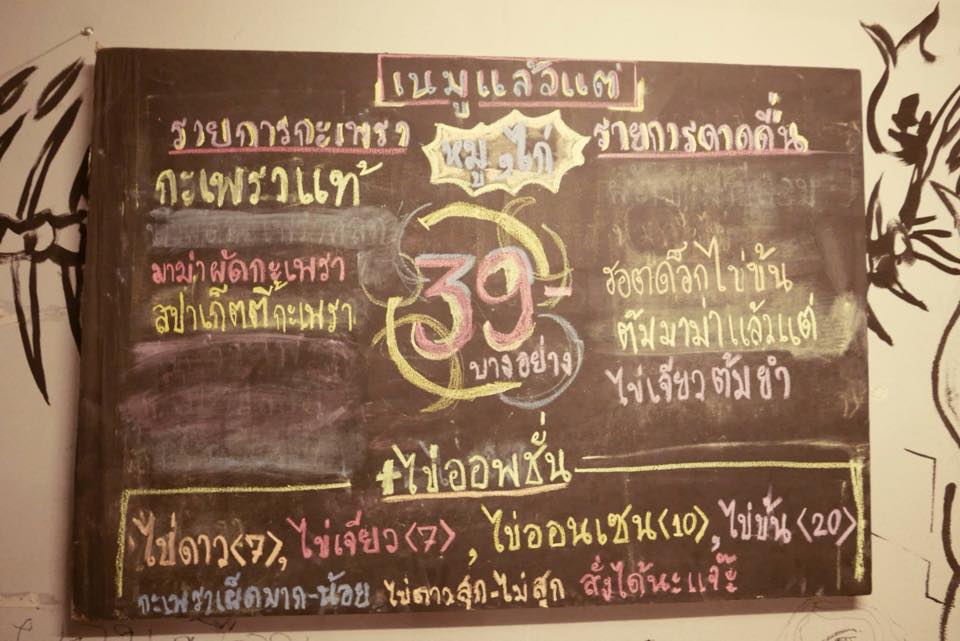 เนมูแล้วแต่
รายการกะเพรา
หมู,ไก่
รายการดาดดื่น
กะเพราแท้
มาม่าผัดกะเพรา
สปาเก็ตตี้กะเพรา
39-
บางอย่าง
รอตด๊วกไข่ข้น
ต้มมาม่าแล้วแต่
ไข่เจียวต้มยำ
+ไข่ออพชั่น
ไข่ดาว<7>, ไข่เจียว<7>, ไข่ออนเซน<10>, ไข่ข้น<20>
กะเพราเผ็ดมาก-น้อย ไข่ดาวสุก-ไม่สุก สั่งได้นะแจ๊ะ